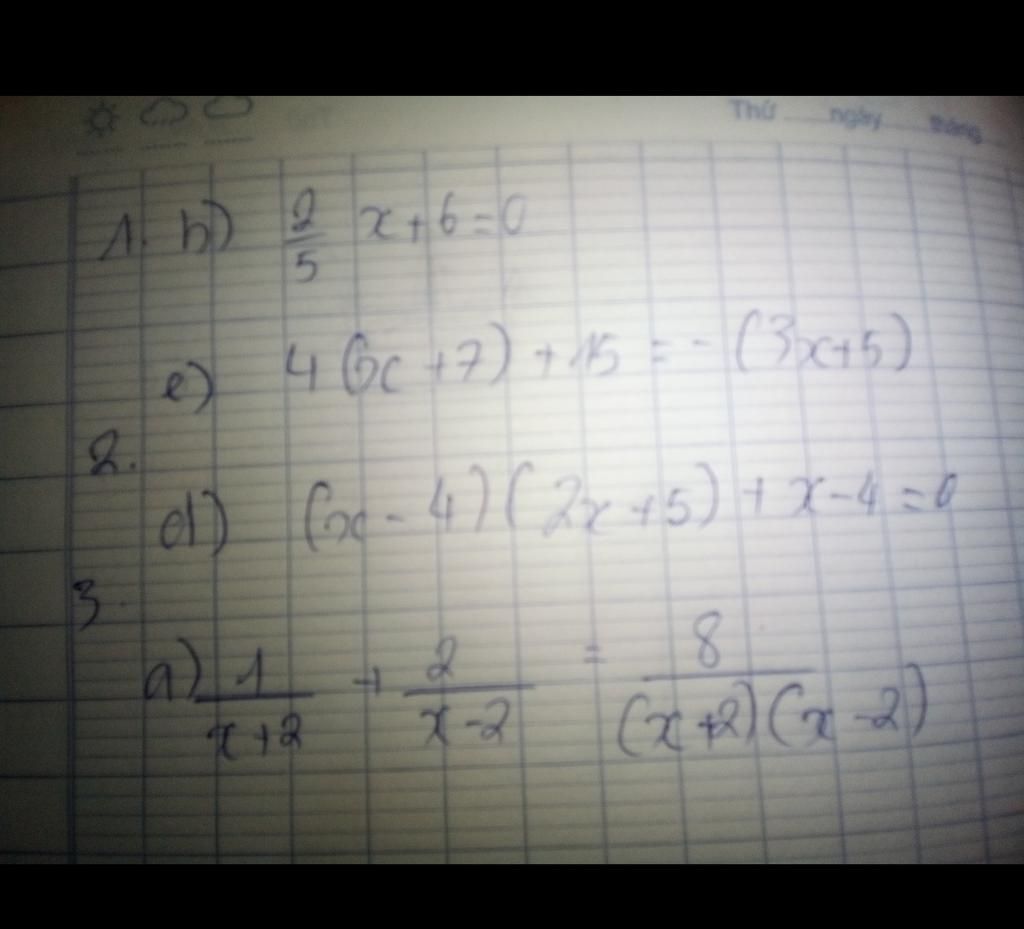 Thứ ngày tháng
1. b) 2/5 x + 6 = 0
e) 4(x + 7) + 15 = - (3x + 5)
2.
d) (x - 4)(2x + 5) + x - 4 = 0
3.
a) 1/(x + 2) + 2/(x - 2) = 8/((x + 2)(x - 2))